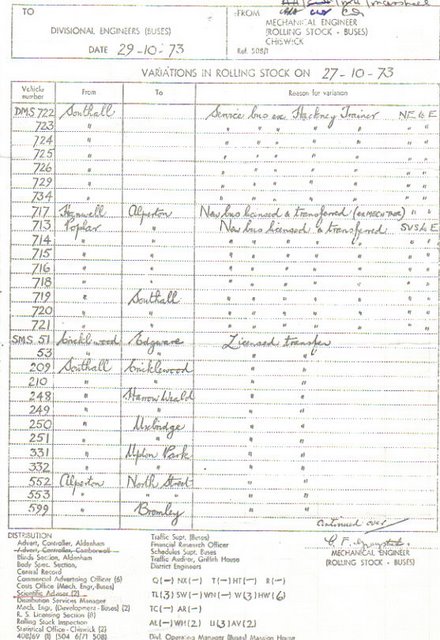 TO
FROM
DIVISIONAL ENGINEERS (BUSES)
MECHANICAL ENGINEER
(ROLLING STOCK - BUSES)
CHISWICK
DATE 29-10-73
Ref. 508/1
VARIATIONS IN ROLLING STOCK ON 27-10-73
Vehicle number From To Reason for variation
DMS 722 Southall Service bus exe Hackney Trainer NE to E
723 " " " " " " " "
724 " " " " " " " "
725 " " " " " " " "
726 " " " " " " " "
729 " " " " " " " "
734 " " " " " " " "
717 Hanwell Alperton New bus licensed & transferred " "
713 Poplar " New bus licensed & transferred SUS to E
714 " " " " " " " "
715 " " " " " " " "
716 " " " " " " " "
718 " " " " " " " "
719 " Southall " " " " " "
720 " " " " " " " "
721 " " " " " " " "
SMS 51 Cricklewood Edgware Licensed transfer
53 " " " "
209 Southall Cricklewood " "
210 " " " "
248 " Harrow Weald " "
249 " " " "
250 " Uxbridge " "
251 " " " "
331 " Upton Park " "
332 " " " "
552 Alperton North Street " "
553 " " " "
599 " Bromley " "
continued over
MECHANICAL ENGINEER
(ROLLING STOCK - BUSES)
DISTRIBUTION
Advert. Controller, Aldenham
Advert. Controller, Camberwell
Blinds Section, Aldenham
Body Spec. Section,
General Record
Commercial Advertising Officer (6)
Costs Office (Mech. Engr, Buses)
Scientific Adviser (2)
Distribution Services Manager
Mech. Engr, (Development - Buses) (2)
R. S. Licensing Section (1)
Rolling Stock Inspection
Statistical Office - Chiswick (2)
408/69 (1) (504 6/71 508)
Traffic Supt. (Buses)
Financial Research Officer
Schedules Supt. Buses
Traffic Auditor, Griffith House
District Engineers
Q (-) NX (-) T (-) HT (-) R (-)
TL (3) SW (-) WN (-) W (3) HW (6)
TC (-) AR (-)
AL (-) WH (2) U (3) AV (2)
Divl. Operating Manager (Buses) Mession House